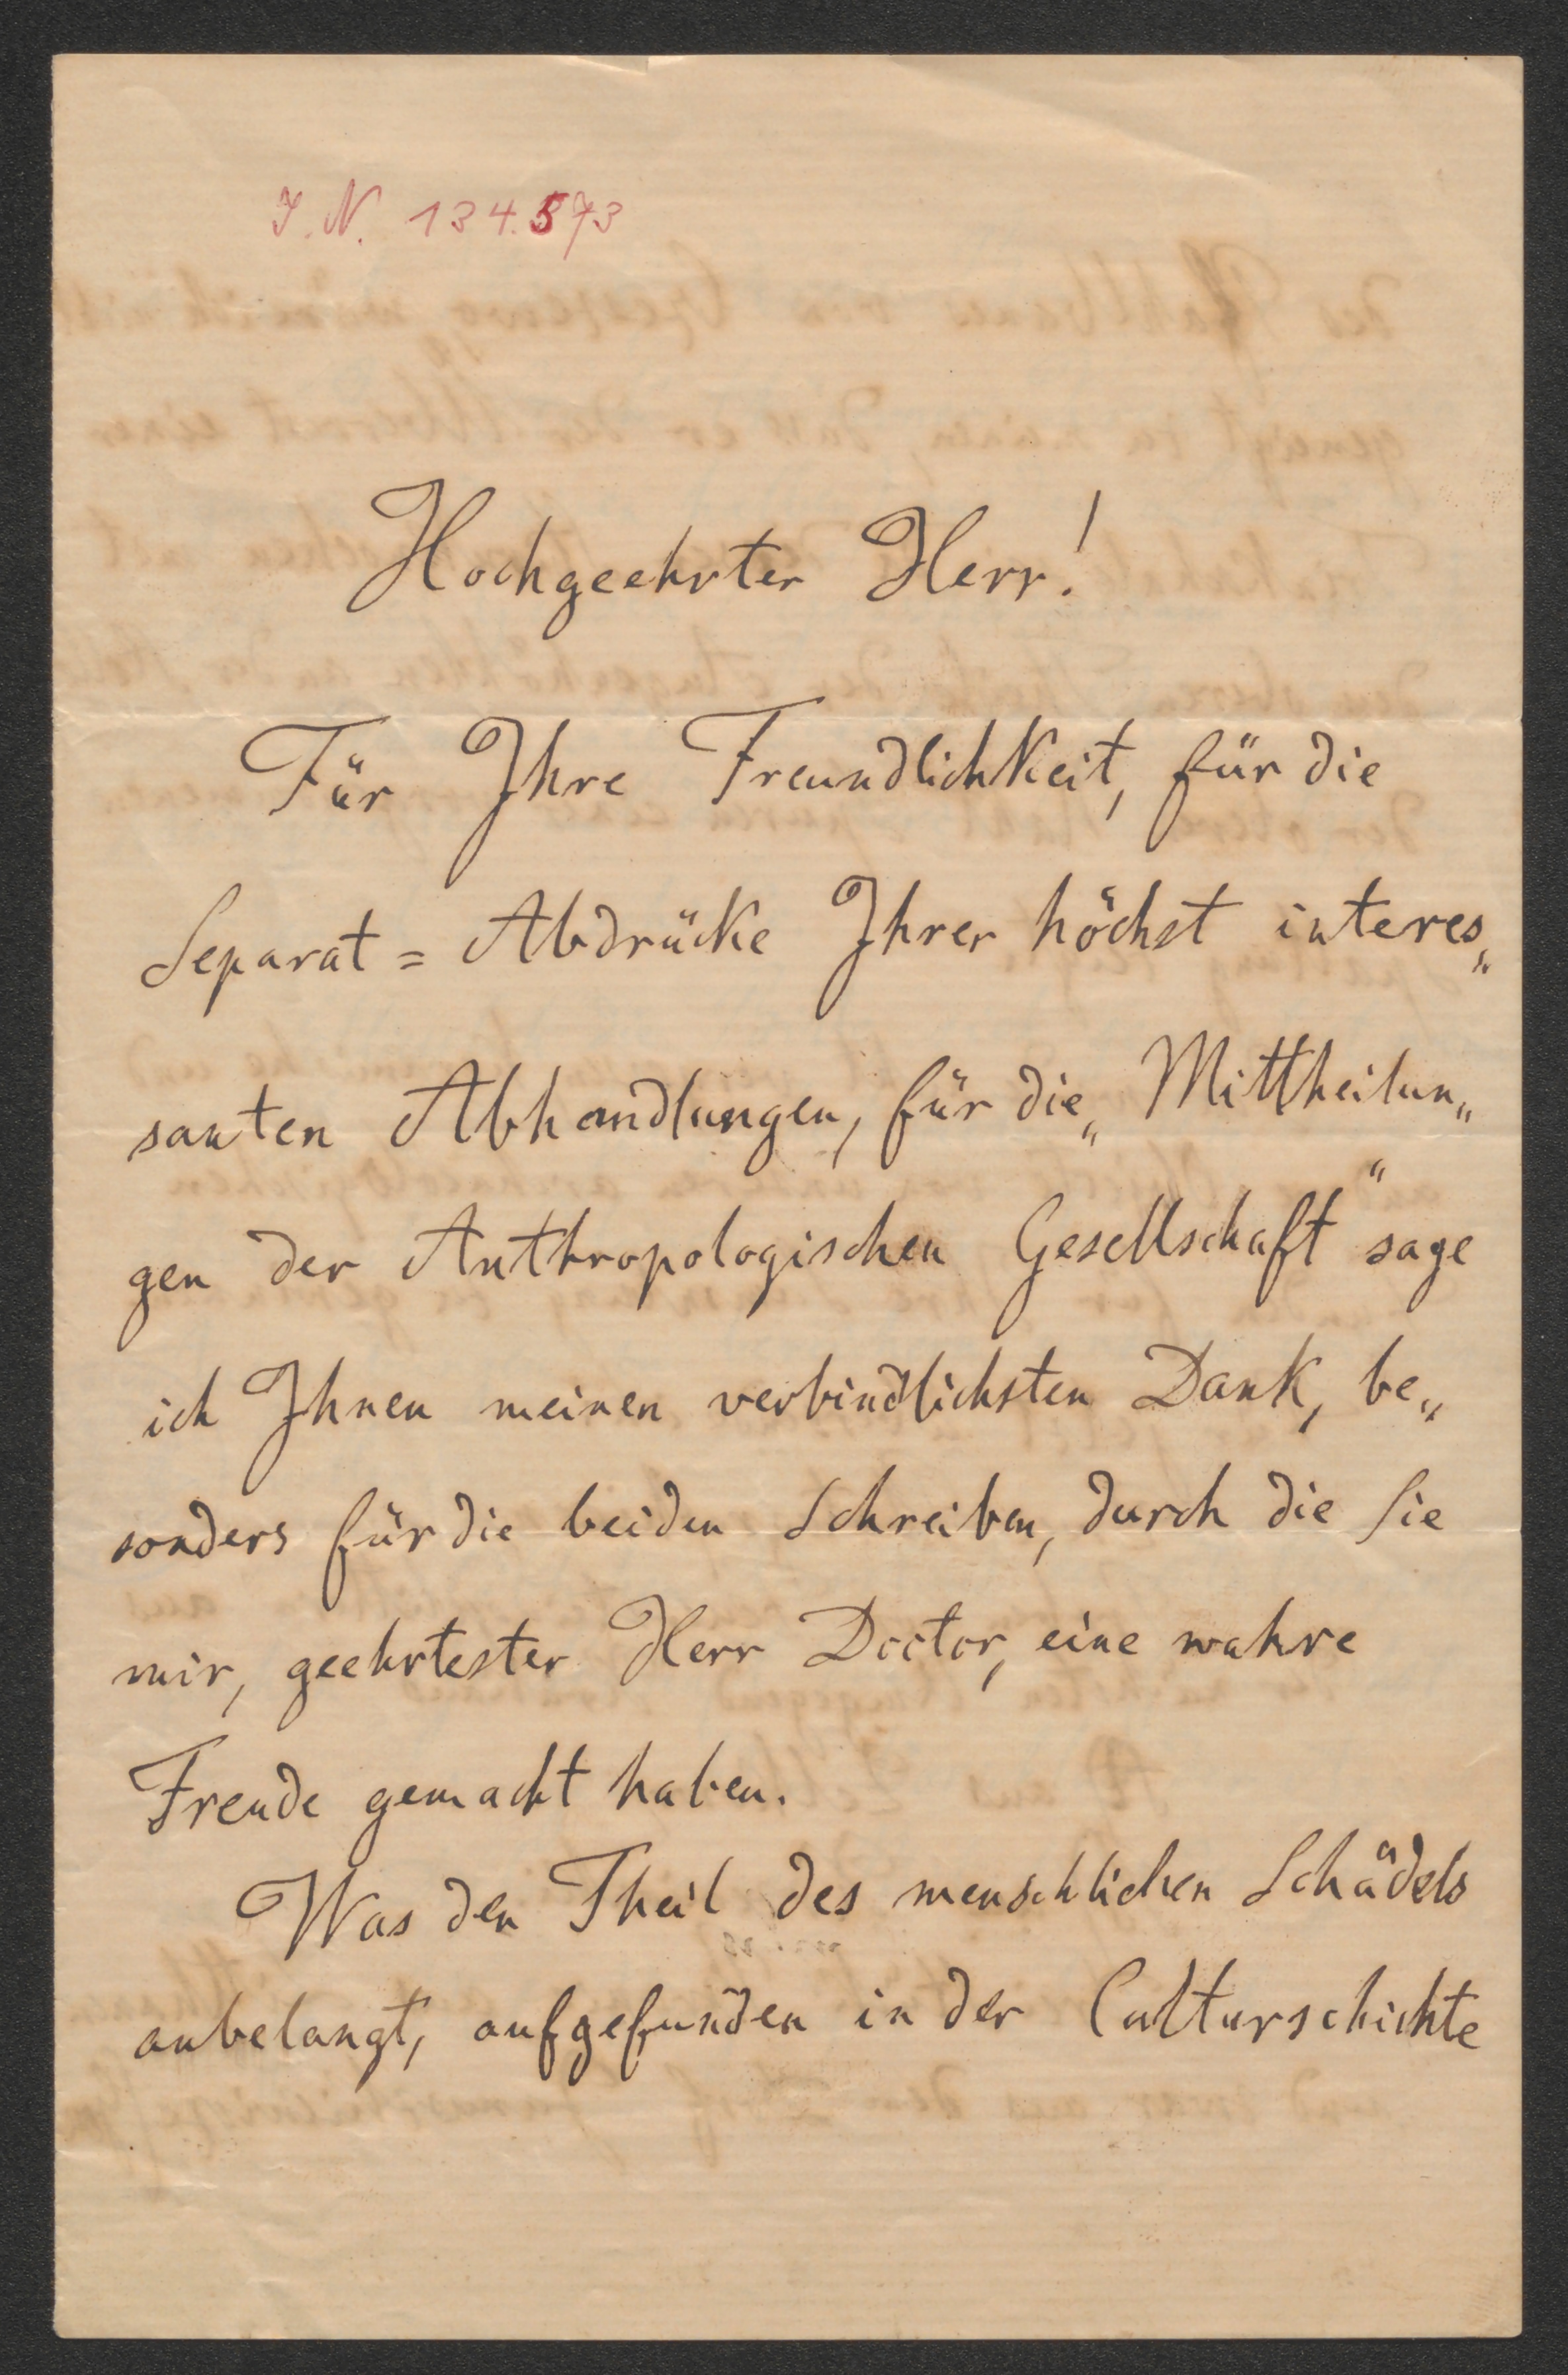 I. N. 134.573
Hochgeehrter Herr!
Für Ihre Freundlichkeit, für die
Separat = Abdrücke Ihrer höchst interes„
santen Abhandlungen, für die „Mittheilun„
gen der Anthropologischen Gesellschaft“ sage
ich Ihnen meinen verbindlichsten Dank, be„
sonders für die beiden Schreiben, durch die Sie
mir, geehrtester Herr Doctor, eine wahre
Freude gemacht haben.
Was den Theil des menschlichen Schädels
anbelangt, aufgefunden in der Culturschichte